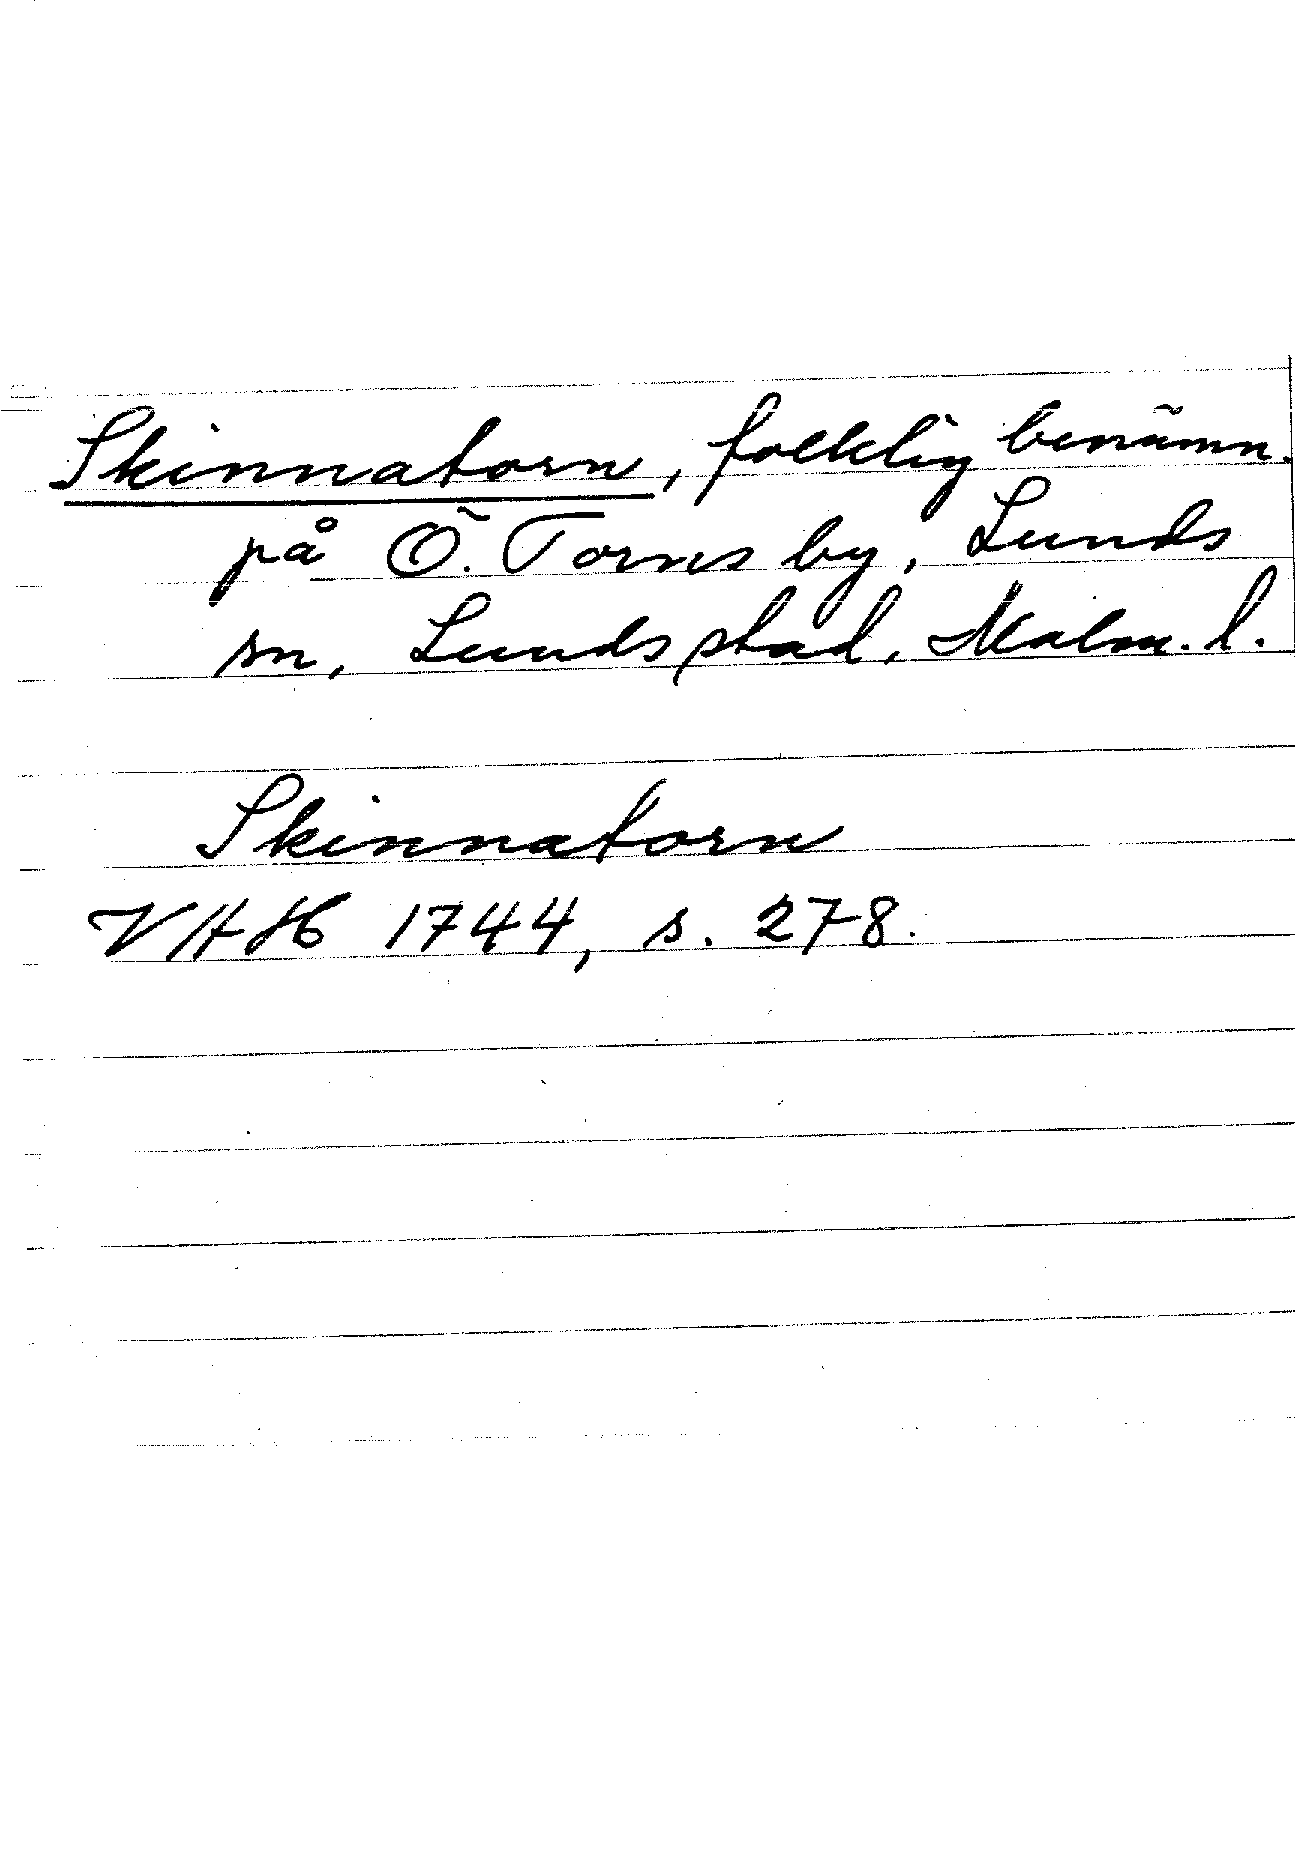 Skinnatorn, folklig benämn.
på Ö. Torns by, Lunds
sn, Lunds stad, Malm. l.
Skinnatorn
VHH 1744, s. 278.